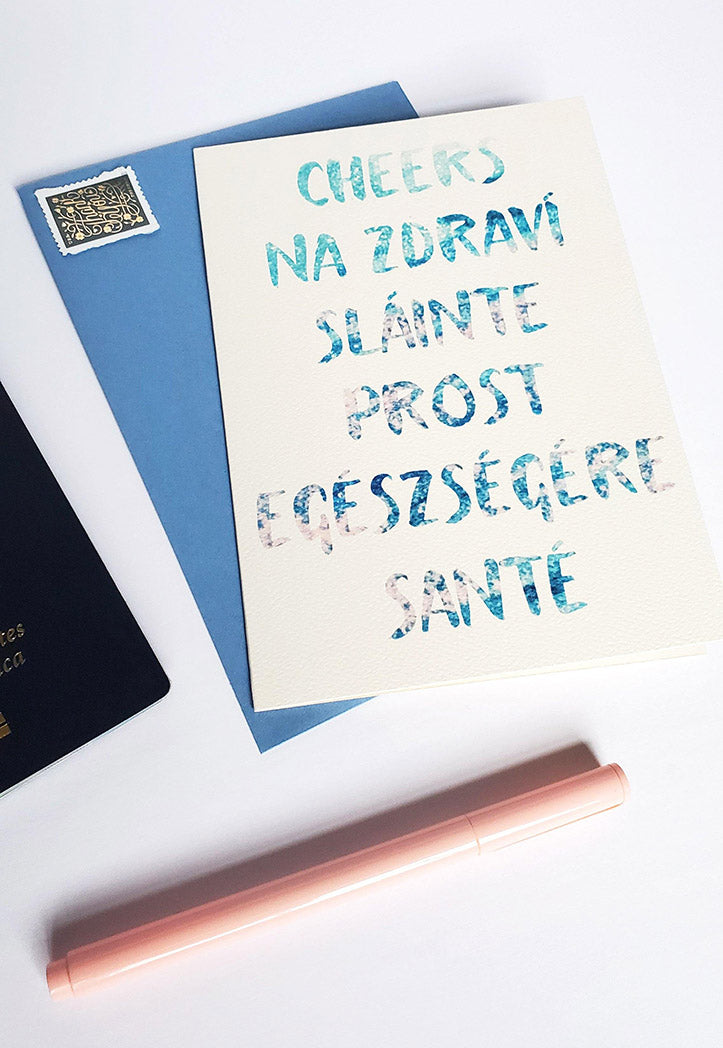 CHEERS
NA ZDRAVÍ
SLÁINTE
PROST
EGÉSZSÉGÉRE
SANTÉ